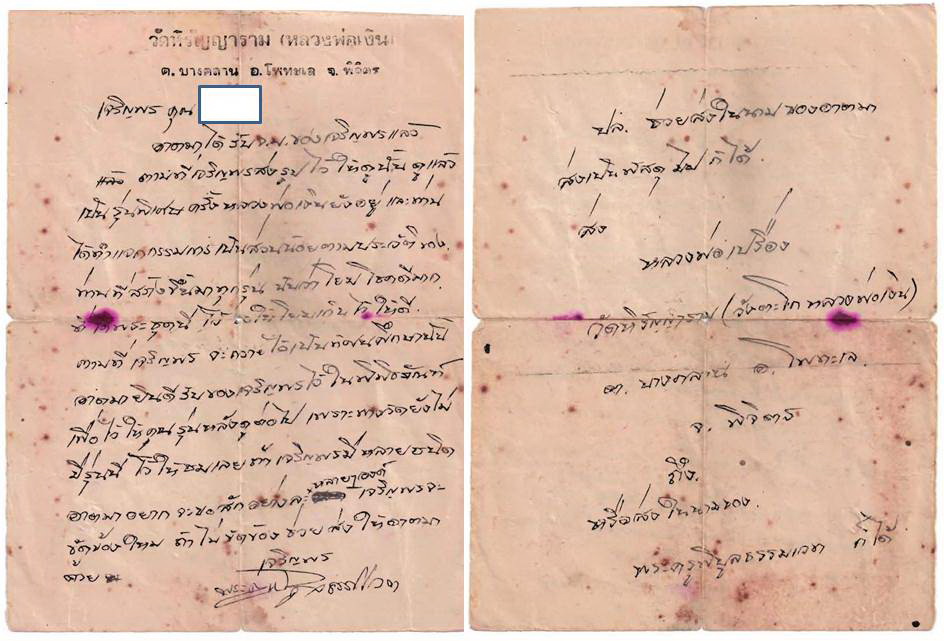 วัดหิรัญญาราม (หลวงพ่อเงิน)
ต. บางคลาน อ. โพทะเล จ. พิจิตร
เจริญพร คุณ
อาตมาได้รับ จ.ม. ของเจริญพรแล้ว
แล้ว ตามที่เจริญพรส่งรูปไว้ให้ดูนั้นดูแล้ว
เป็นรุ่นพิเศษ ครั้งหลวงพ่อเงินยังอยู่ และท่าน
ได้ทำแจกกรรมการ เป็นส่วนน้อยตามประวัติของ
ท่านที่สร้างขึ้นมาทุกรุ่น นับว่าโยมโชคดีมาก
ที่ได้พระชุดนี้ไว้ ขอให้โยมเก็บไว้ให้ดี
ตามที่เจริญพร จะถวาย
อาตมายินดีรับของเจริญพรไว้ในพิพิธภัณฑ์
เพื่อไว้ให้คนรุ่นหลังดูต่อไป เพราะทางวัดยังไม่
มีรุ่นนี้ไว้ให้ชมเลย ถ้าเจริญพรมีหลายชนิด
อาตมาอยากจะขอสักอย่างละ หลายๆองค์ เจริญพรจะ
ขัดข้องไหม ถ้าไม่ขัดข้องช่วยส่งให้อาตมา
ด้วย
เจริญพร
ปล. ช่วยส่งในนามของอาตมา
ส่งเป็นพัสดุไปก็ได้.
ส่ง
หลวงพ่อเปรื่อง
วัดหิรัญญาราม (วังตะโก หลวงพ่อเงิน)
ต. บางคลาน อ. โพทะเล
จ. พิจิตร
ถึง.
หรือส่งในนามของ.
พระครูพิบูลธรรมเวท ก็ได้